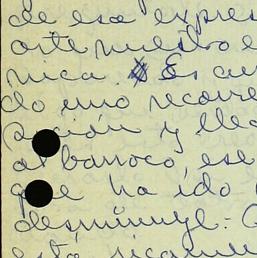 de esa expres
arte nuestro e
nica. Es cu
do uno recorre
y lle
al barroco, ese
que ha ido
desminuye:
está ricam